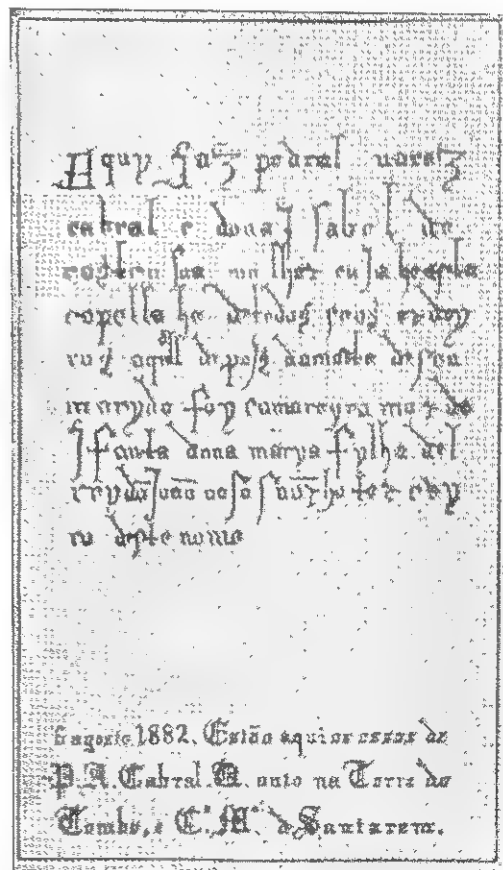 Aquy Jaz pedral uarez
cabral e dona Jsabel de
castro sua molher cuja he esta
capella he de todos seus erdey
ros aquall depois da morte de seu
marydo foy camareyra mor da
Jfanta dona marya fylha del
rey dõ João noso snõr ho ter cey
ro deste nome
6 agosto 1882. Estão aqui os ossos de
P. A. Cabral. O. auto na Torre do
Tombo, e C.ª M.ª de Santarem.